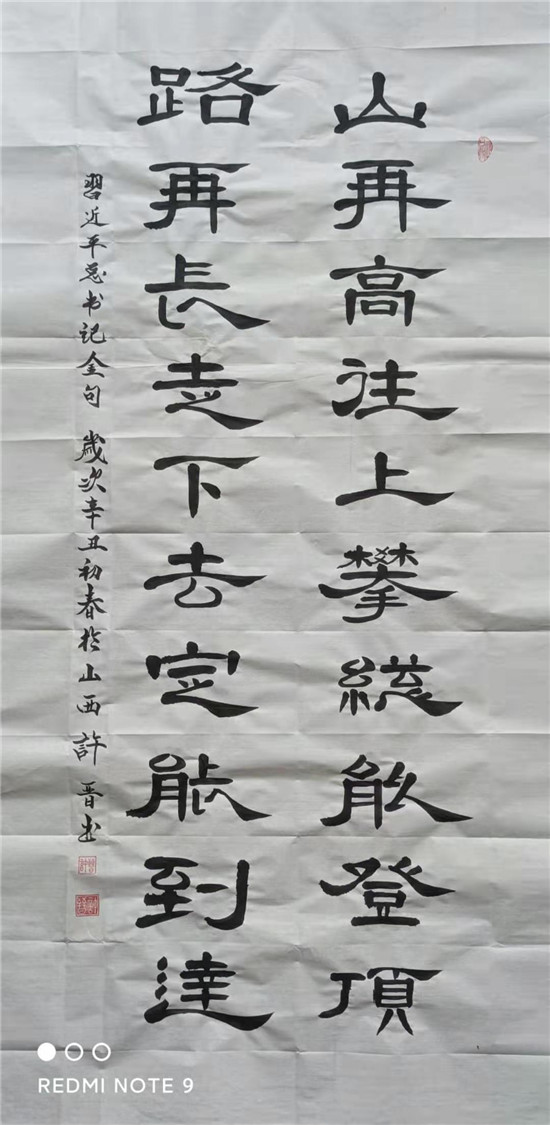 山再高往上攀總能登頂
路再长走下去定能到達
習近平总书记金句 歲次辛丑初春於山西 許晋书
REDMI NOTE 9